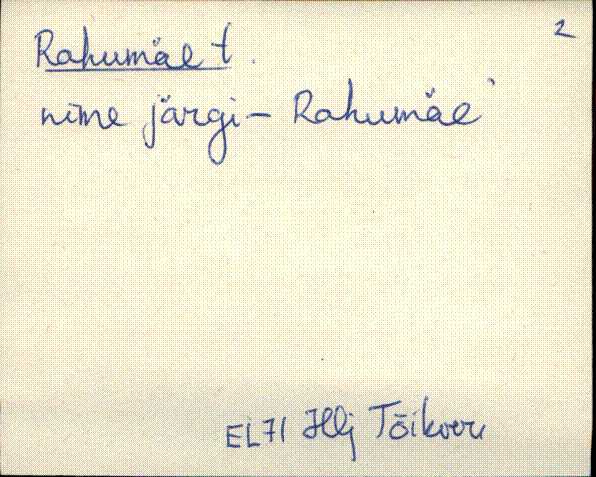 2
Rahumäe t.
nime järgi – Rahumäe
EL71 Hlj Tõikvere